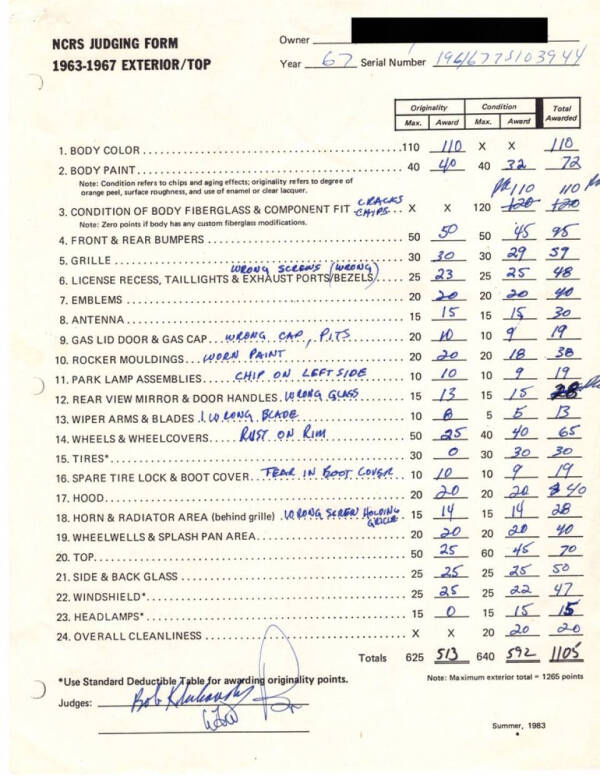 NCRS JUDGING FORM
1963-1967 EXTERIOR/TOP
Owner
Year 67 Serial Number 194677S103944
Originality Condition Total Awarded
Max. Award Max. Award
1. BODY COLOR 110 110 X X 110
2. BODY PAINT 40 40 40 32 72
Note: Condition refers to chips and aging effects; originality refers to degree of
orange peel, surface roughness, and use of enamel or clear lacquer.
110 110
3. CONDITION OF BODY FIBERGLASS & COMPONENT FIT CRACKS CHIPS X X 120 120 120
Note: Zero points if body has any custom fiberglass modifications.
4. FRONT & REAR BUMPERS 50 50 50 45 95
5. GRILLE 30 30 30 29 59
WRONG SCREWS (WRONG)
6. LICENSE RECESS, TAILLIGHTS & EXHAUST PORTS/BEZELS 25 23 25 25 48
7. EMBLEMS 20 20 20 20 40
8. ANTENNA 15 15 15 15 30
9. GAS LID DOOR & GAS CAP WRONG CAP, PITS 20 10 10 9 19
10. ROCKER MOULDINGS WORN PAINT 20 20 20 18 38
11. PARK LAMP ASSEMBLIES CHIP ON LEFT SIDE 10 10 10 9 19
12. REAR VIEW MIRROR & DOOR HANDLES WRONG GLASS 15 13 15 15 28
13. WIPER ARMS & BLADES 1 WRONG BLADE 10 8 5 5 13
14. WHEELS & WHEELCOVERS RUST ON RIM 50 25 40 40 65
15. TIRES* 30 0 30 30 30
16. SPARE TIRE LOCK & BOOT COVER TEAR IN BOOT COVER 10 10 10 9 19
17. HOOD 20 20 20 20 40
18. HORN & RADIATOR AREA (behind grille) WRONG SCREW HOLDING GRILLE 15 14 15 14 28
19. WHEELWELLS & SPLASH PAN AREA 20 20 20 20 40
20. TOP 50 25 60 45 70
21. SIDE & BACK GLASS 25 25 25 25 50
22. WINDSHIELD* 25 25 25 22 47
23. HEADLAMPS* 15 0 15 15 15
24. OVERALL CLEANLINESS X X 20 20 20
Totals 625 513 640 592 1105
*Use Standard Deductible Table for awarding originality points.
Note: Maximum exterior total = 1265 points
Judges: Bob
Summer, 1983